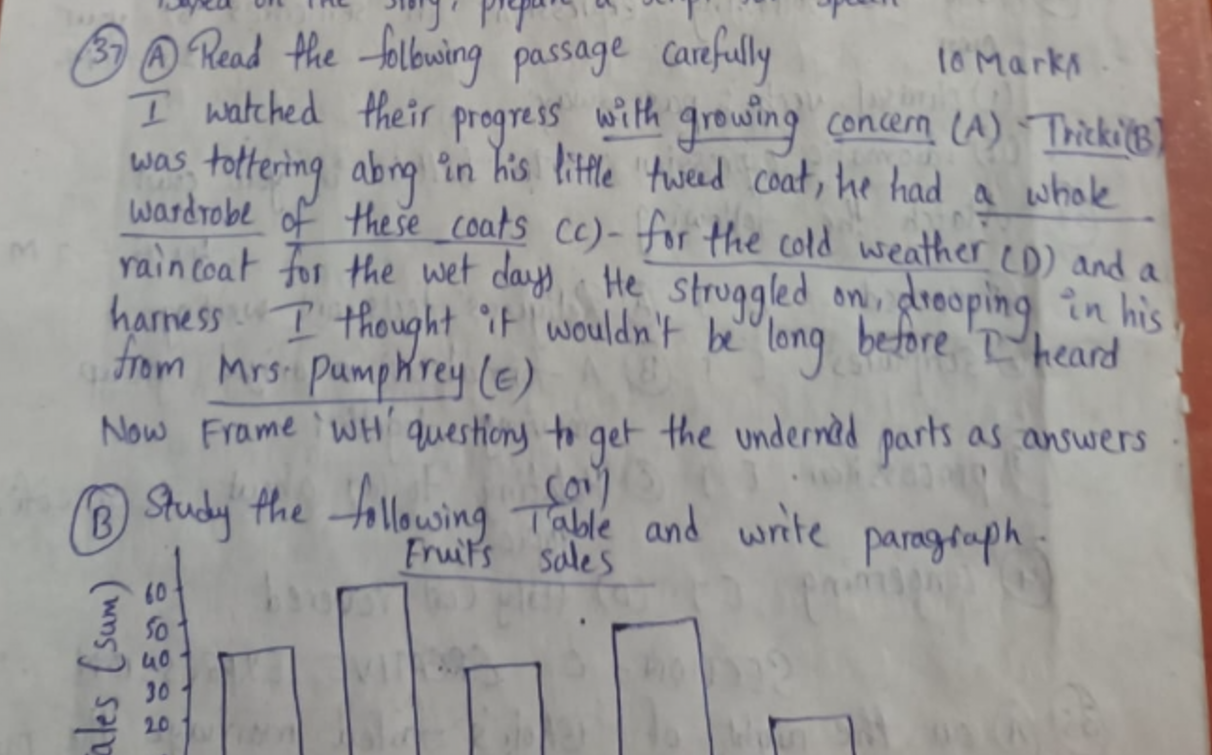 the story, prepare a
37 A Read the following passage carefully 10 Marks.
I watched their progress with growing concern (A) Tricki (B)
was tottering along in his little tweed coat, he had a whole
wardrobe of these coats (C) - for the cold weather (D) and a
raincoat for the wet days. He struggled on, drooping in his
harness. I thought it wouldn't be long before I heard
from Mrs. Pumphrey (E)
Now Frame 'WH' questions to get the parts as answers.
(or)
B Study the following Table and write paragraph.
Fruits sales
60
50
40
30
20
ales (sum)